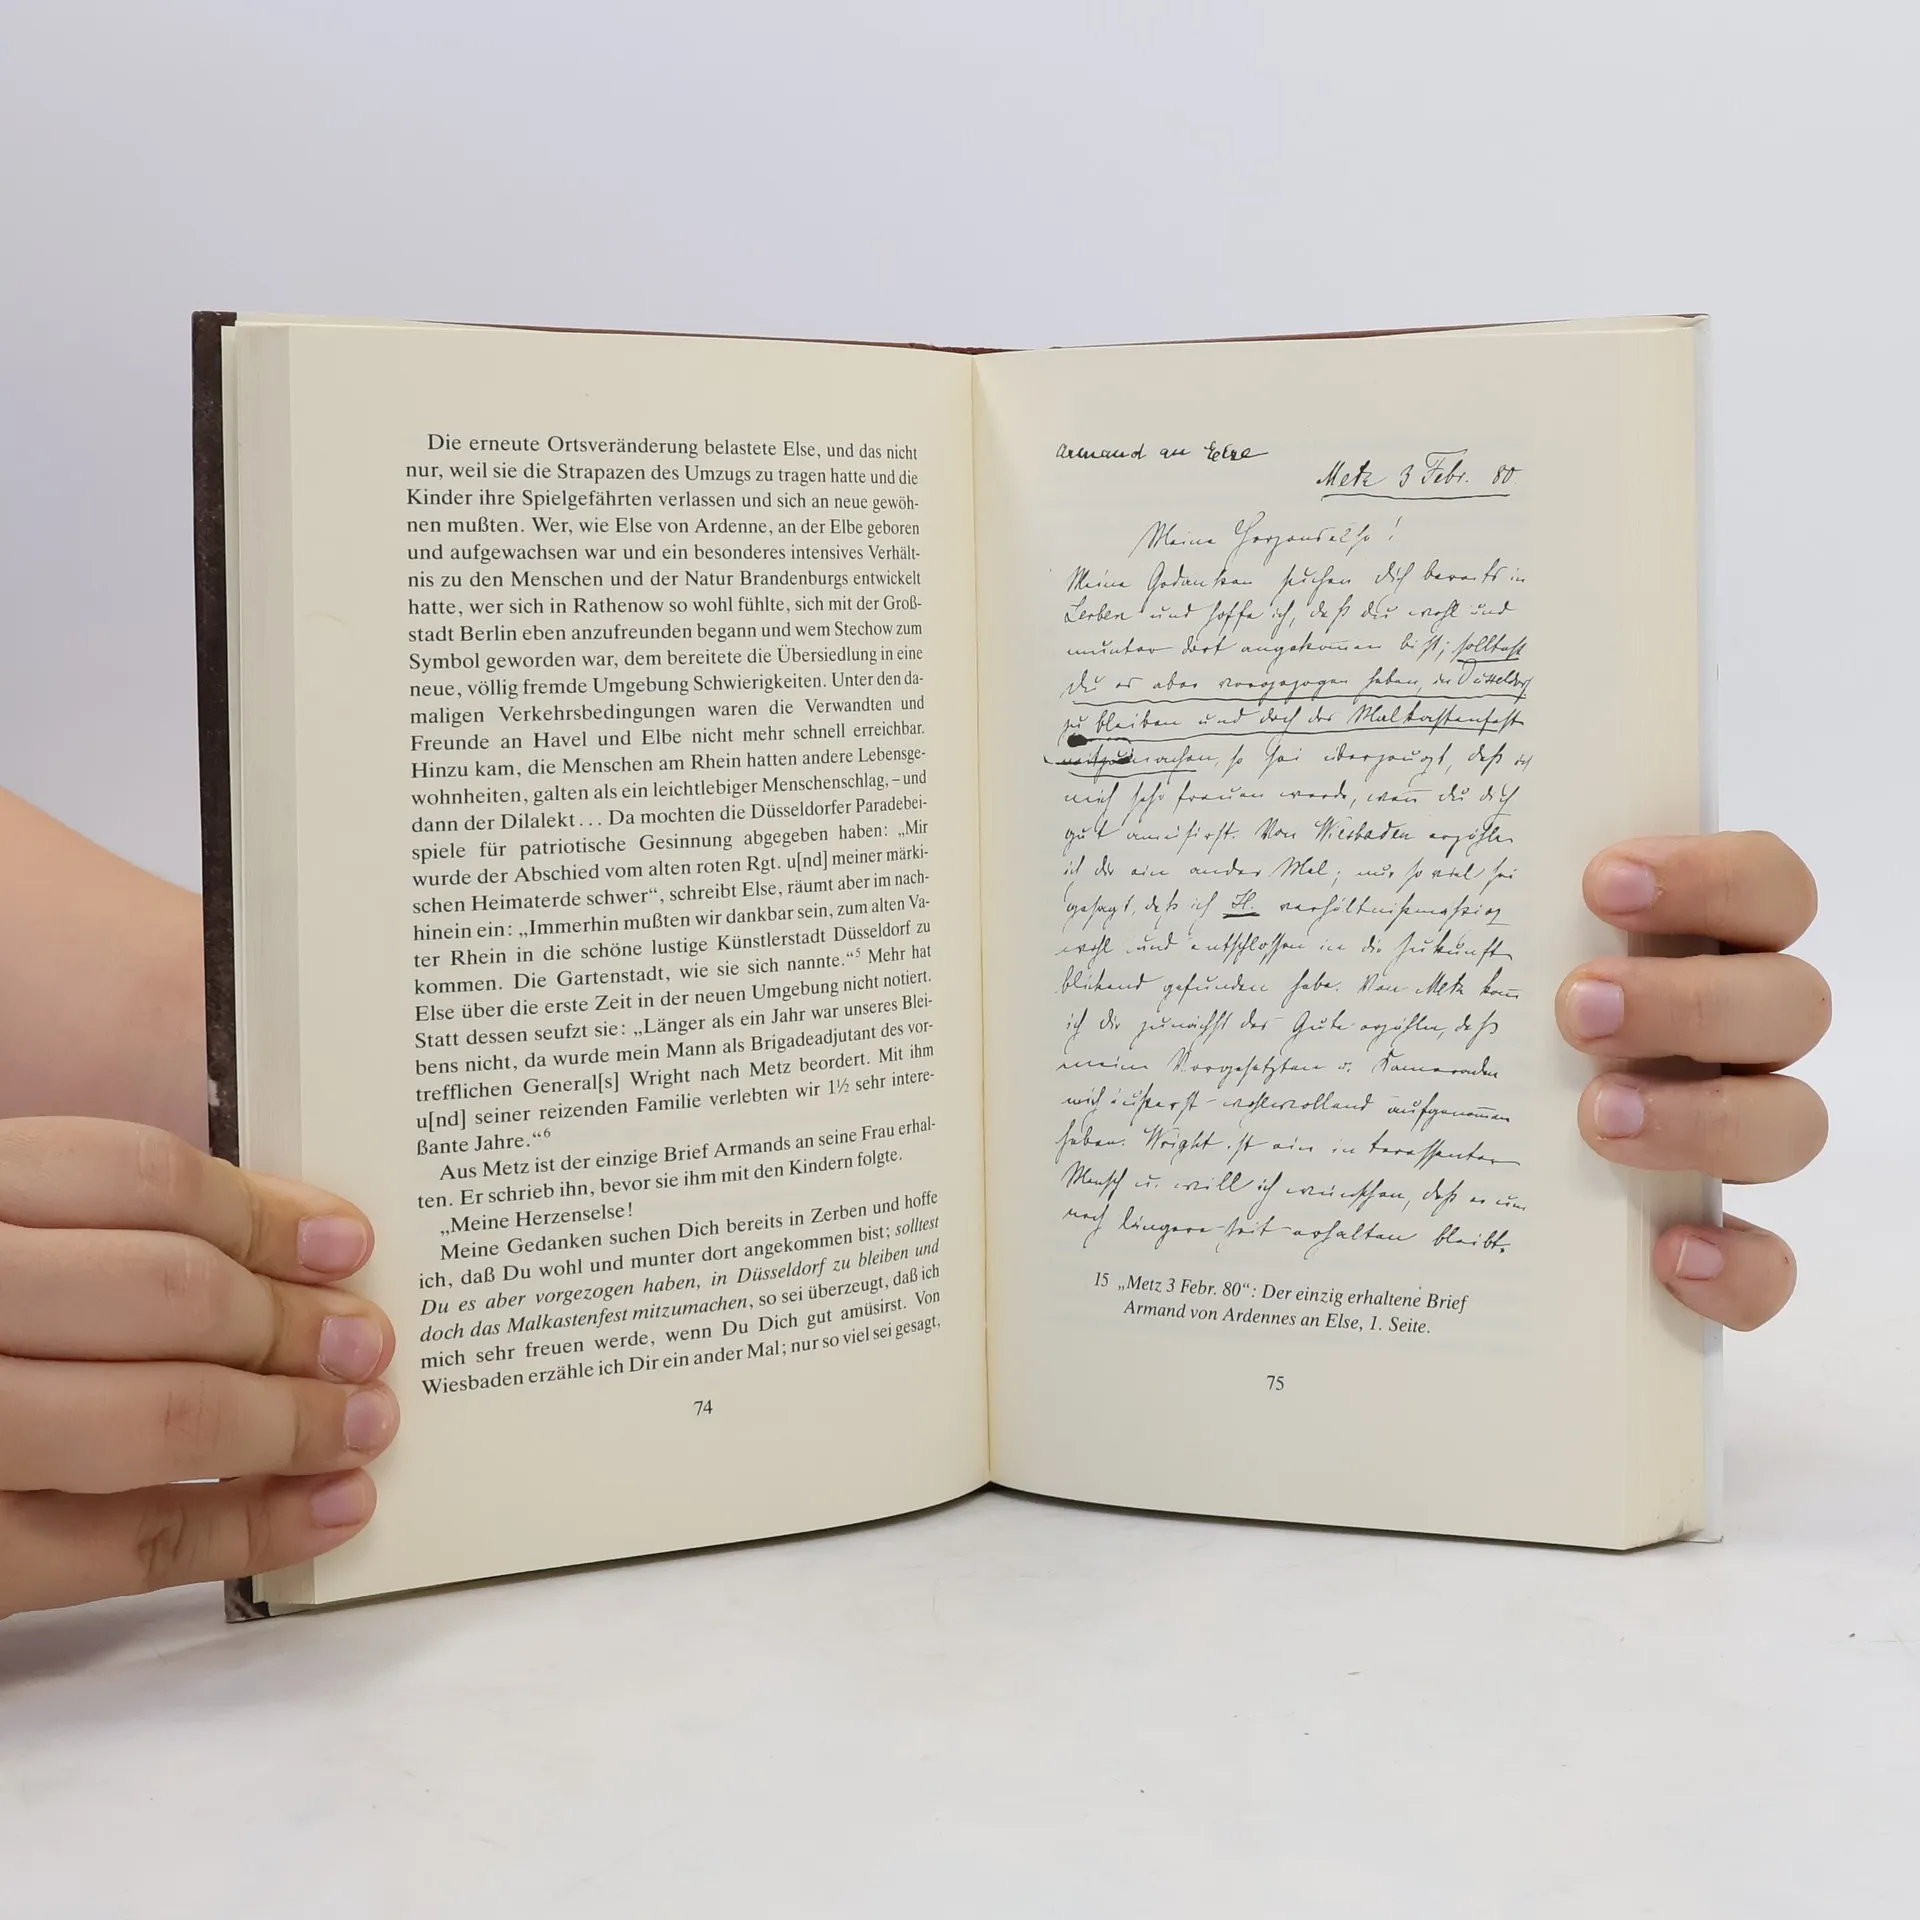 Die erneute Ortsveränderung belastete Else, und das nicht
nur, weil sie die Strapazen des Umzugs zu tragen hatte und die
Kinder ihre Spielgefährten verlassen und sich an neue gewöh-
nen mußten. Wer, wie Else von Ardenne, an der Elbe geboren
und aufgewachsen war und ein besonderes intensives Verhält-
nis zu den Menschen und der Natur Brandenburgs entwickelt
hatte, wer sich in Rathenow so wohl fühlte, sich mit der Groß-
stadt Berlin eben anzufreunden begann und wem Stechow zum
Symbol geworden war, dem bereitete die Übersiedlung in eine
neue, völlig fremde Umgebung Schwierigkeiten. Unter den da-
maligen Verkehrsbedingungen waren die Verwandten und
Freunde an Havel und Elbe nicht mehr schnell erreichbar.
Hinzu kam, die Menschen am Rhein hatten andere Lebensge-
wohnheiten, galten als ein leichtlebiger Menschenschlag, – und
dann der Dilalekt... Da mochten die Düsseldorfer Paradebei-
spiele für patriotische Gesinnung abgegeben haben: „Mir
wurde der Abschied vom alten roten Rgt. u[nd] meiner märki-
schen Heimaterde schwer“, schreibt Else, räumt aber im nach-
hinein ein: „Immerhin mußten wir dankbar sein, zum alten Va-
ter Rhein in die schöne lustige Künstlerstadt Düsseldorf zu
kommen. Die Gartenstadt, wie sie sich nannte.“5 Mehr hat
Else über die erste Zeit in der neuen Umgebung nicht notiert.
Statt dessen seufzt sie: „Länger als ein Jahr war unseres Blei-
bens nicht, da wurde mein Mann als Brigadeadjutant des vor-
trefflichen General[s] Wright nach Metz beordert. Mit ihm
u[nd] seiner reizenden Familie verlebten wir 1½ sehr intere-
ßante Jahre.“6
Aus Metz ist der einzige Brief Armands an seine Frau erhal-
ten. Er schrieb ihn, bevor sie ihm mit den Kindern folgte.
„Meine Herzenselse!
Meine Gedanken suchen Dich bereits in Zerben und hoffe
ich, daß Du wohl und munter dort angekommen bist; solltest
Du es aber vorgezogen haben, in Düsseldorf zu bleiben und
doch das Malkastenfest mitzumachen, so sei überzeugt, daß ich
mich sehr freuen werde, wenn Du Dich gut amüsirst. Von
Wiesbaden erzähle ich Dir ein ander Mal; nur so viel sei gesagt,
74
Armand an Else
Metz 3 Febr. 80
Meine Herzenselse!
Meine Gedanken suchen Dich bereits in
Zerben und hoffe ich, daß Du wohl und
munter dort angekommen bist; solltest
Du es aber vorgezogen haben, in Düsseldorf
zu bleiben und doch das Malkastenfest
mitzumachen, so sei überzeugt, daß ich
mich sehr freuen werde, wenn Du Dich
gut amüsirst. Von Wiesbaden erzähle
ich Dir ein ander Mal; nur so viel sei
gesagt, daß ich H. verhältnißmäßig
wohl und entschlossen in die Zukunft
blickend gefunden habe. Von Metz kann
ich Dir zunächst das Gute erzählen, daß
meine Vorgesetzten u. Kameraden
mich äußerst wohlwollend aufgenommen
haben. Wright ist ein interessanter
Mensch u. will ich wünschen, daß er uns
noch längere Zeit erhalten bleibt.
15 „Metz 3 Febr. 80“: Der einzig erhaltene Brief
Armand von Ardennes an Else, 1. Seite.
75